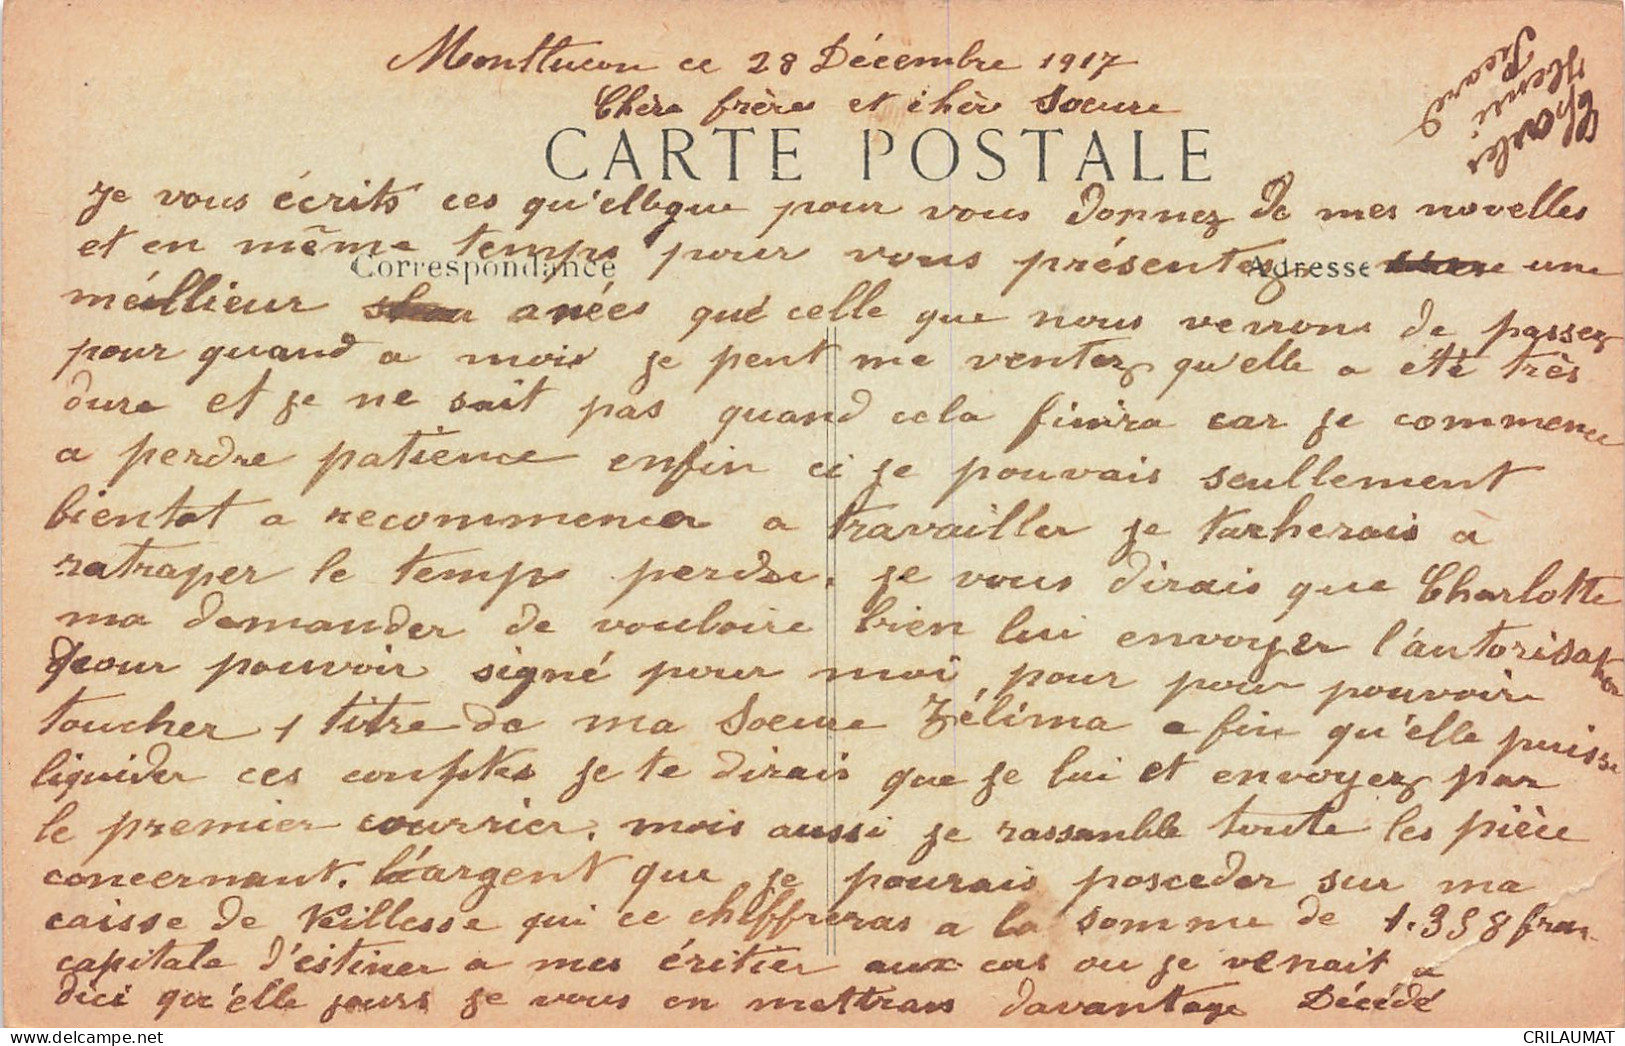 Montlucon ce 28 Décembre 1917
Chèrs frères et chèr Soeure
Charles
Henri
Picard
CARTE POSTALE
Je vous écrits ces qu'ellegue pour vous donnez de mes novelles
et en même temps pour vous présentez une
Correspondance
Adresse
méillieur anées que celle que nous verrons de passez
pour quand a mois je peut me ventez qu'elle a été très
dure et je ne sait pas quand cela finira car je commence
a perdre patience enfin ci je pouvais seullement
bientot a recommencer a travailler je tacherais à
ratraper le temps perdu. je vous dirais que Charlotte
ma demander de vouloire bien lui envoyer l'autorisation
pour pouvoir signé pour moi pour pour pouvoir
toucher 1 titre de ma Soeure Zélima a fin qu'elle puisse
liquider ces comptes je te dirais que je lui et envoyez par
le premier courrier. mois aussi je rassemble toute les pièce
concernant. l'argent que je pourais posceder sur ma
caisse de Veillesse qui ce chiffreras a la somme de 1.358 fran
capitale d'éstiner a mes éritier aux cas ou je venait a
dici qu'elle jours je vous en mettrais davantage Décédé
CRILAUMAT